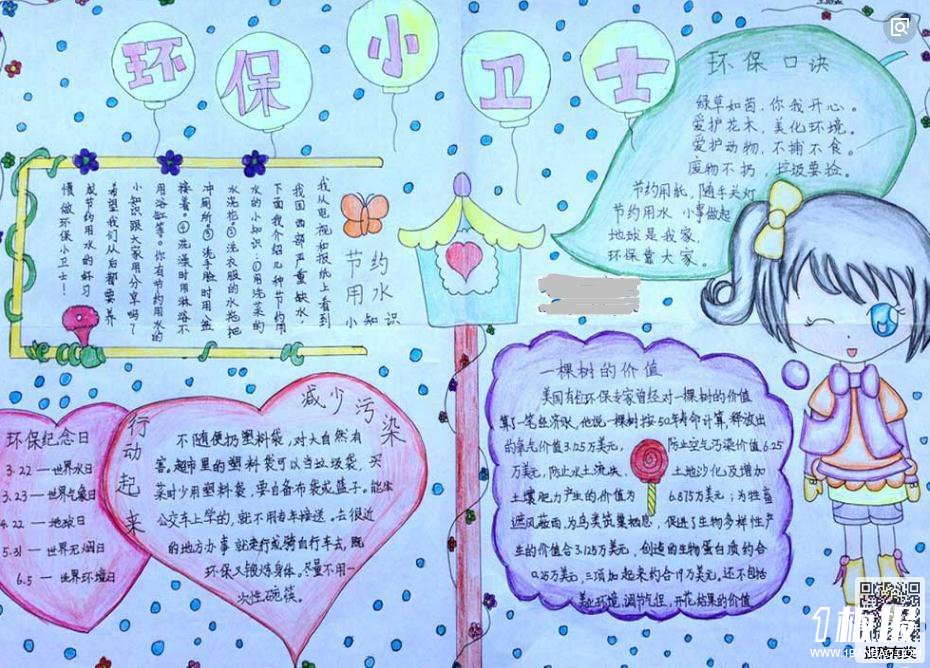 环保小卫士
环保口诀
绿草如茵,你我开心。
爱护花木,美化环境。
爱护动物,不捕不食。
废物不扔,垃圾要捡。
节约用纸,随手关灯
节约用水 小事做起
地球是我家,
环保靠大家。
节约
用水
小知识
我从电视和报纸上看到
我国西部严重缺水,
下面我介绍几种节约用
水的小知识:①用洗菜的
水洗拖②洗衣服的水拖把
冲厕所。③洗手脸时用盆
接着。④洗澡时用淋浴不
用浴缸等。你有节约用水的
小知识跟大家用分享吗?
希望我们从后都要养
成节约用水的好习
惯做环保小卫士!
环保纪念日
3.22—世界水日
3.23—世界气象日
4.22—地球日
5.31—世界无烟日
6.5—世界环境日
行动起来
减少污染
不随便扔塑料袋,对大自然有
害。超市里的塑料袋可以当垃圾袋,买
菜时少用塑料袋,要自备布袋或篮子。能坐
公交车上学的,就不用专车接送。去很近
的地方办事就走行或骑自行车去,既
环保又锻炼身体。尽量不用一
次性碗筷。
一棵树的价值
美国有位环保专家曾经对一棵树的价值
算了一笔经济账,他说一棵树按50年寿命计算,释放出
的氧气价值3.125万美元, 防止空气污染价值6.25
万美元,防止水土流失、 土地沙化及增加
土壤肥力产生的价值为 6.875万美元;为牲畜
遮风蔽雨,为鸟类筑巢栖息,促进了生物多样性产
生的价值合3.125万美元,创造的生物蛋白质约合
0.25万美元,三项加起来约合19万美元。还不包括
美化环境,调节气侯,开花结果的价值
www.1banbao.com